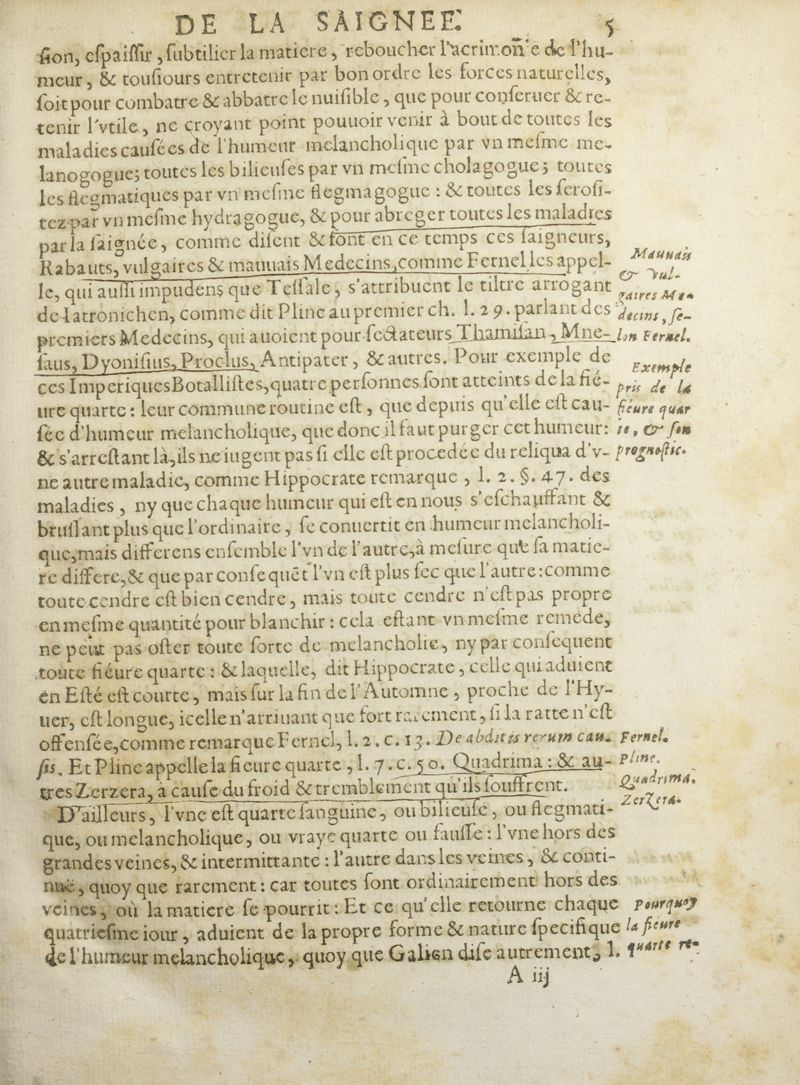 DE LA SAIGNEE. 5
sion, espaissir, subtilier la matiere, reboucher l'acrimonie de l'hu-
meur, & tousiours entretenir par bon ordre les forces naturelles,
soit pour combatre & abbatre le nuisible, que pour conseruer & re-
tenir l'vtile, ne croyant point pouuoir venir à bout de toutes les
maladies causées de l'humeur melancholique par vn mesme me-
lanogogue; toutes les bilieuses par vn mesme cholagogue; toutes
les flegmatiques par vn mesme flegmagogue : & toutes les serosi-
tez par vn mesme hydragogue, & pour abreger toutes les maladies
par la saignée, comme disent & font en ce temps ces saigneurs,
Rabauts, vulgaires & mauuais Medecins, comme Fernel les appel-
le, qui aussi impudens que Tessale, s'attribuent le tiltre arrogant
de Iatronichen, comme dit Pline au premier ch. l. 29. parlant des
premiers Medecins, qui auoient pour sectateurs Thamilan, Mne-
saus, Dyonisius, Proclus, Antipater, & autres. Pour exemple de
ces Imperiques Botallistes, quatre personnes sont atteints de la fié-
ure quarte : leur commune routine est, que depuis qu'elle est cau-
sée d'humeur melancholique, que donc il faut purger cet humeur :
& s'arrestant là, ils ne iugent pas si elle est procedée du reliqua d'v-
ne autre maladie, comme Hippocrate remarque, l. 2. §. 47. des
maladies, ny que chaque humeur qui est en nous s'eschauffant &
bruslant plus que l'ordinaire, se conuertit en humeur melancholi-
que, mais differens ensemble l'vn de l'autre, à mesure que sa matie-
re differe, & que par consequēt l'vn est plus sec que l'autre : comme
toute cendre est bien cendre, mais toute cendre n'est pas propre
en mesme quantité pour blanchir : cela estant vn mesme remede,
ne peut pas oster toute sorte de melancholie, ny par consequent
toute fiéure quarte : & laquelle, dit Hippocrate, celle qui aduient
en Esté est courte, mais sur la fin de l'Automne, proche de l'Hy-
uer, est longue, icelle n'arriuant que fort rarement, si la ratte n'est
offensée, comme remarque Fernel, l. 2. c. 13. De abditis rerum cau-
sis. Et Pline appelle la fieure quarte, l. 7. c. 50. Quadrima : & au-
tres Zerzera, à cause du froid & tremblement qu'ils souffrent.
D'ailleurs, l'vne est quarte sanguine, ou bilieuse, ou flegmati-
que, ou melancholique, ou vraye quarte ou fausse : l'vne hors des
grandes veines, & intermittante : l'autre dans les veines, & conti-
nuë, quoy que rarement : car toutes sont ordinairement hors des
veines, où la matiere se pourrit : Et ce qu'elle retourne chaque
quatriesme iour, aduient de la propre forme & nature specifique
de l'humeur melancholique, quoy que Galien dise autrement, l.
A iij
Mauuais
& vul-
gaires Me-
decins, se-
lon Fernel.
Exemple
pris de la
fiéure quar
te, & son
prognostic.
Fernel.
Pline.
Quadrima.
Zerzera.
Pourquoy
la fieure
quarte re-